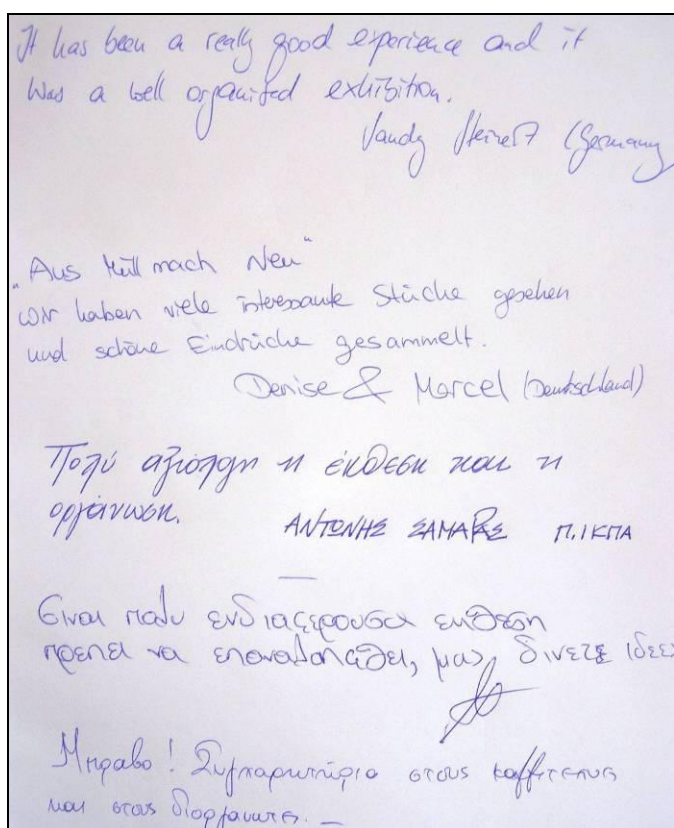 It has been a really good experience and it
was a well organised exhibition.
(Germany
"Aus Müll mach Neu"
wir haben viele interessante Stücke gesehen
und schöne Eindrücke gesammelt.
Denise & Marcel (Deutschland)
Πολύ αξιόλογη η έκθεση και η
οργάνωση.
ΑΝΤΩΝΗΣ ΣΑΜΑΡΑΣ Π.ΙΚΠΑ
Είναι πολυ ενδιαφερουσα εκθεση
πρεπει να επαναληφθει, μας δινετε ιδεες
Μπραβο! Συγχαρητήρια στους καλλιτεχνες
και στους διοργανωτες.